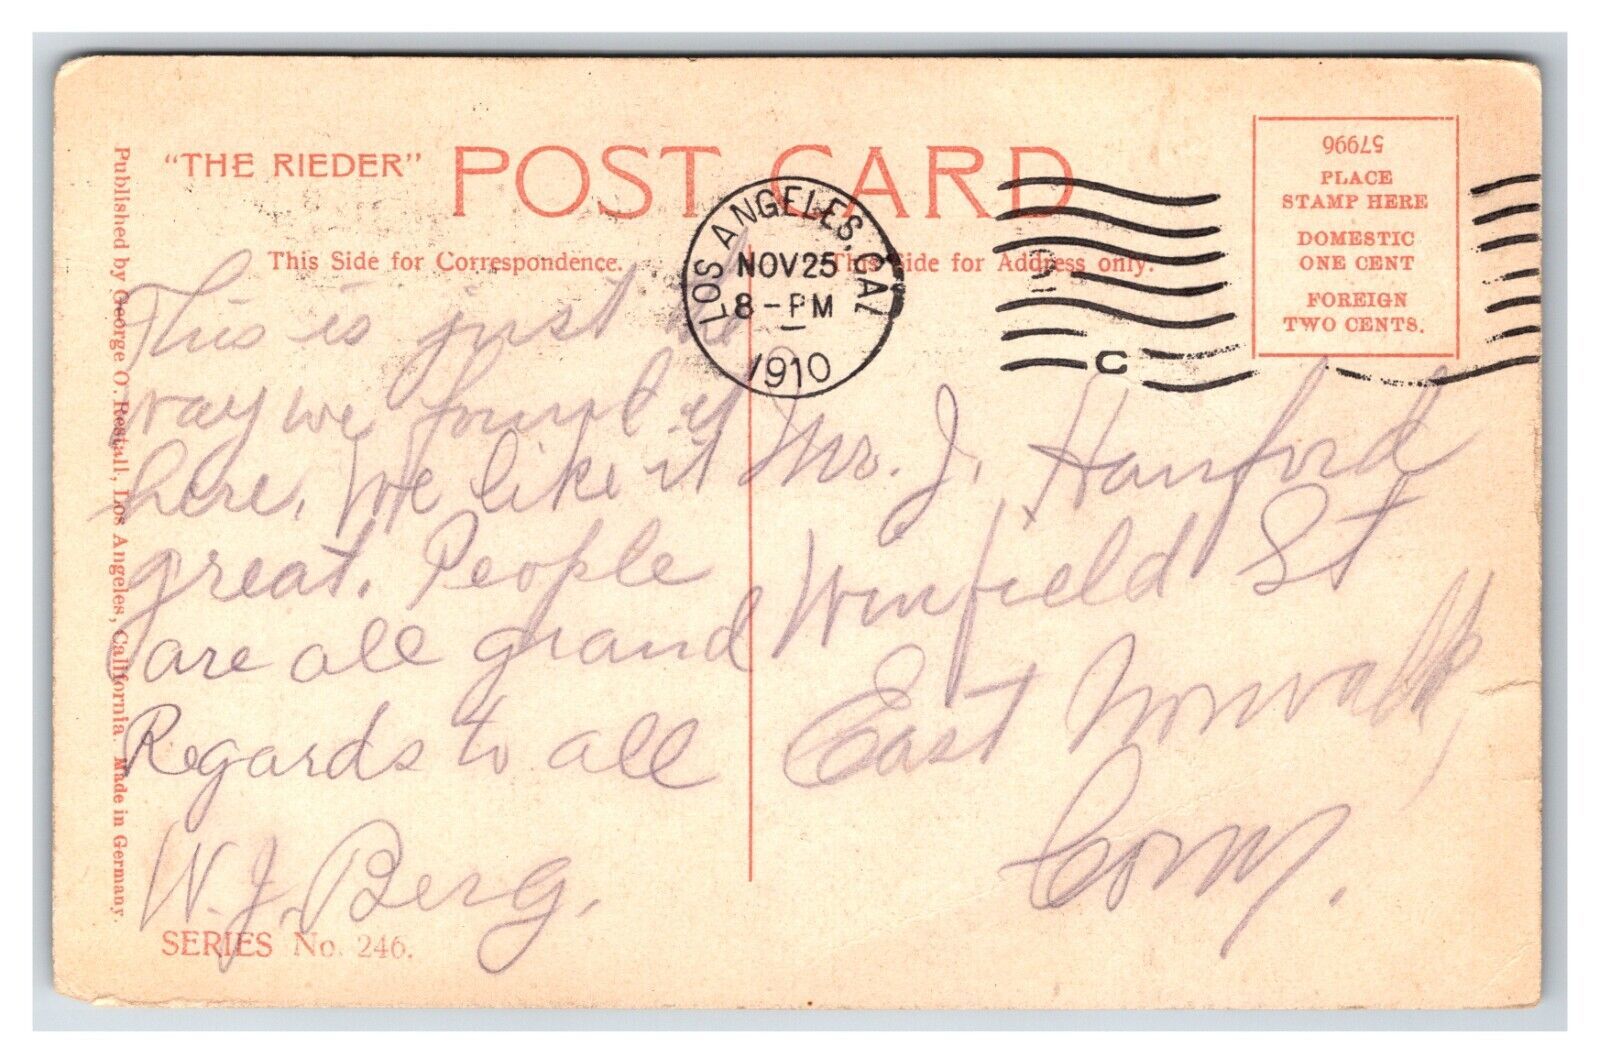 "THE RIEDER" POST CARD
This Side for Correspondence.
This Side for Address only.
57996
PLACE
STAMP HERE
DOMESTIC
ONE CENT
FOREIGN
TWO CENTS.
LOS ANGELES, CAL
NOV 25
8-PM
1910
C
This is just the
way we found it
here. We like it
great. People
are all grand
Regards to all
W. J. Berg.
Mr. J. Hanford
Winfield St
East Norwalk,
Conn.
SERIES No. 246.
Published by George O. Restall, Los Angeles, California. Made in Germany.